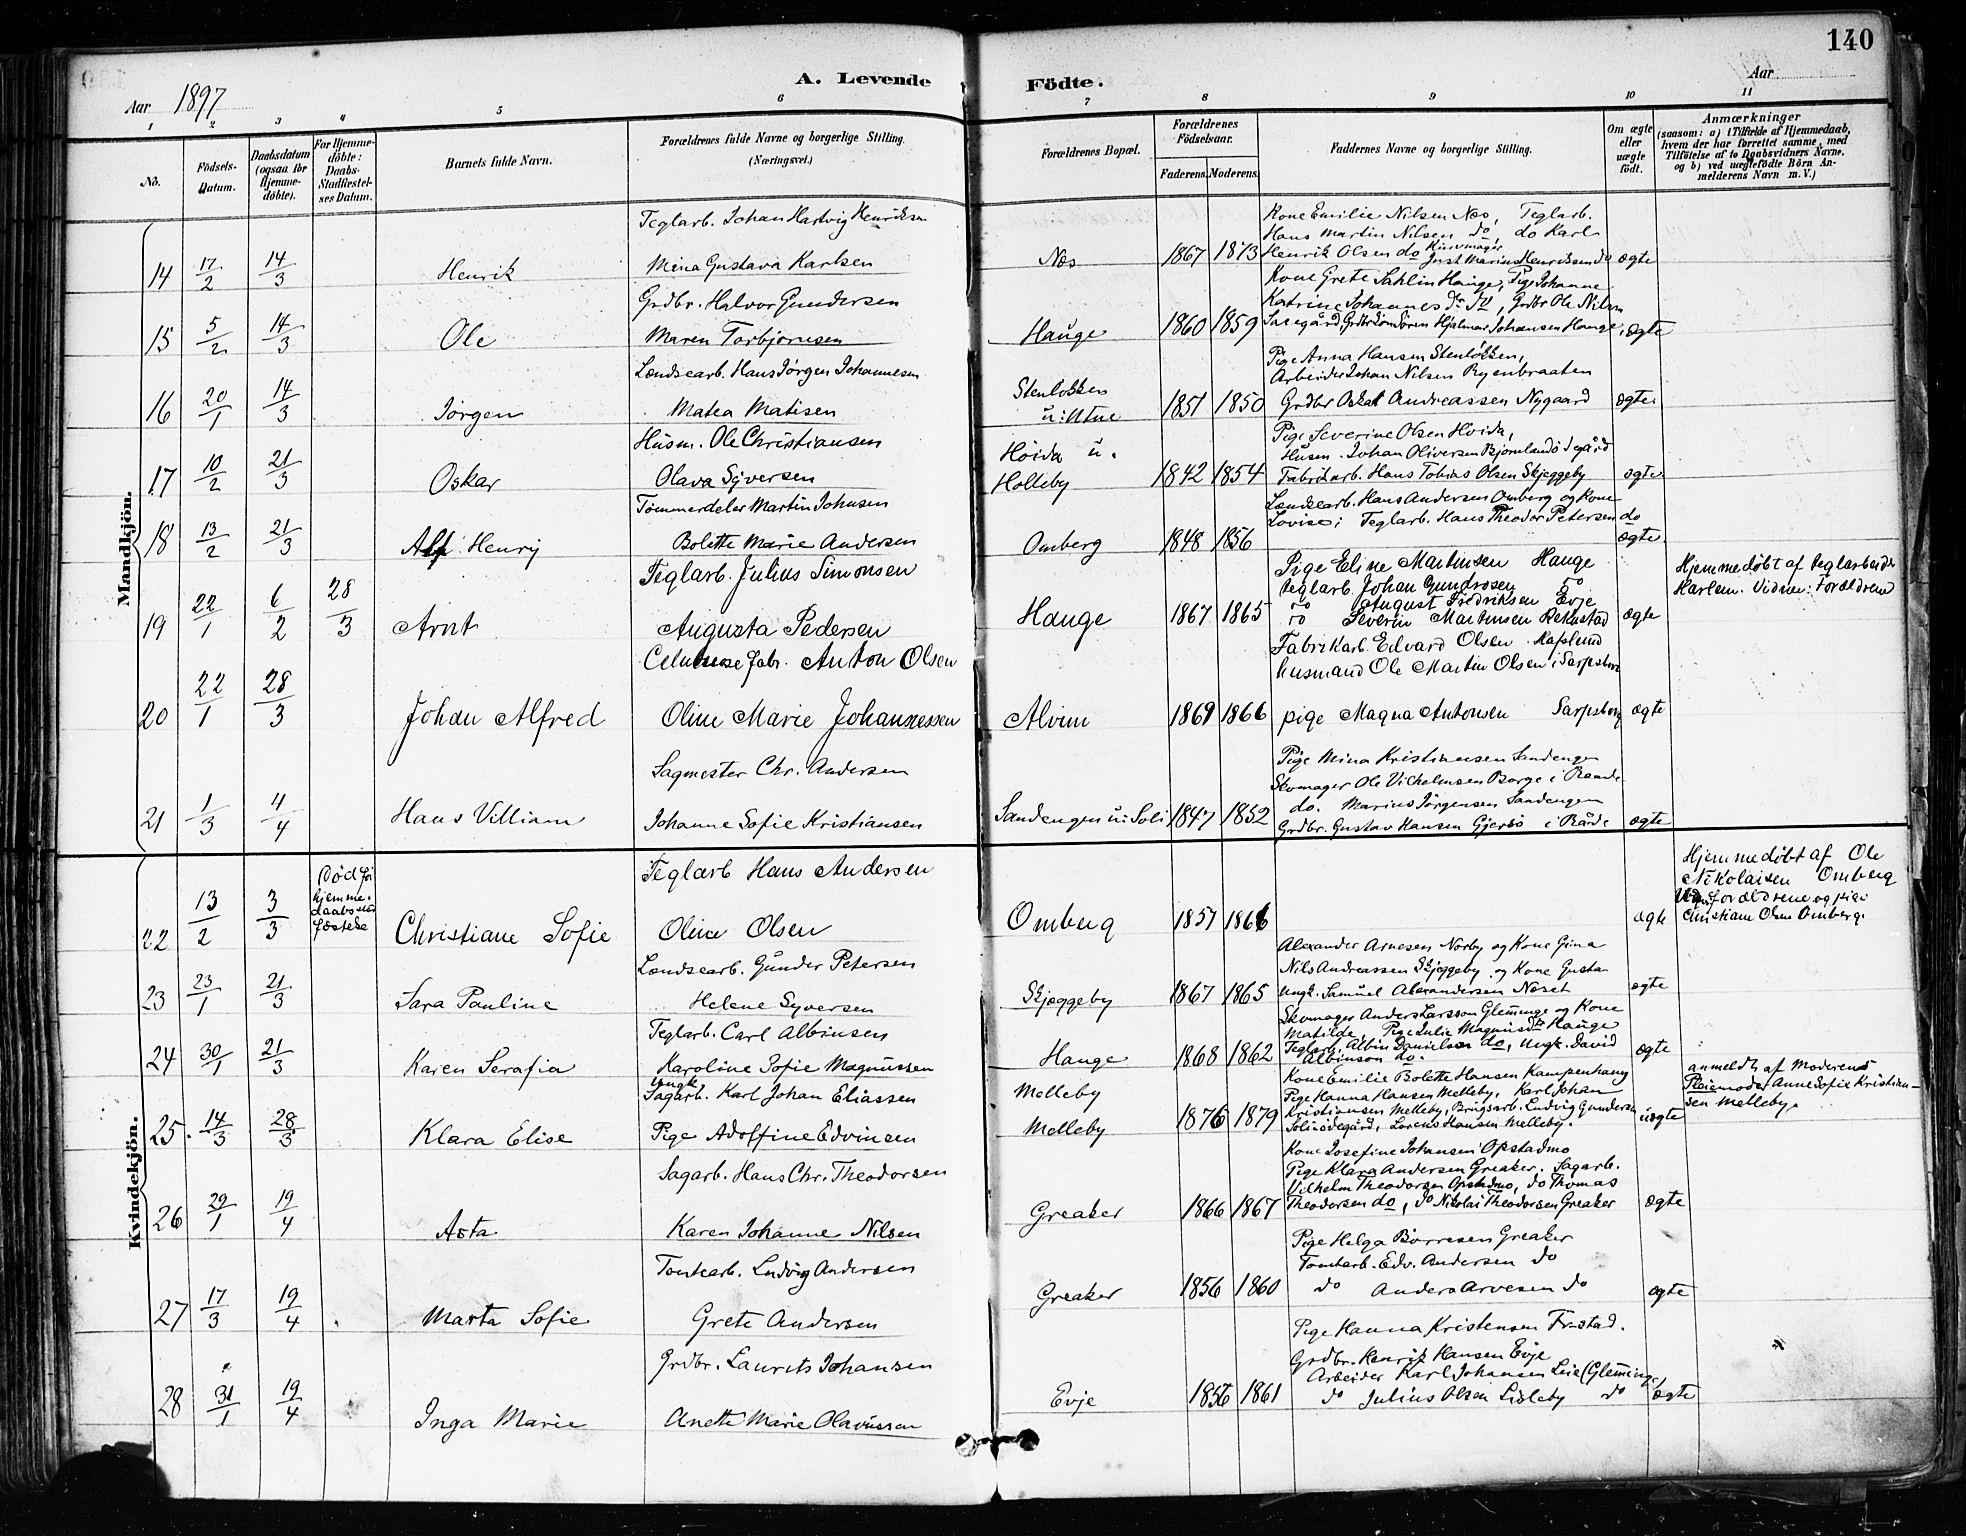 140
A. Levende Födte.
Aar 1897
Aar
1 2 3 4 5 6 7 8 9 10 11
No.
Födsels-Datum.
Daabsdatum (ogsaa for Hjemme-döbte).
For Hjemme-döbte: Daabs-Stadfæstel-ses Datum.
Barnets fulde Navn.
Forældrenes fulde Navne og borgerlige Stilling. (Næringsvei.)
Forældrenes Bopæl.
Forældrenes Födselsaar.
Faderens. Moderens.
Faddernes Navne og borgerlige Stilling.
Om ægte eller uægte födt.
Anmærkninger
(saasom: a) i Tilfælde af Hjemmedaab, hvem der har forrettet samme, med Tilföielse af to Daabsvidners Navne. og b) ved uægtefödte Börn An-melderens Navn m. V.)
Mandkjön.
14 17/2 14/3 Henrik
Teglarb. Johan Hartvig Henriksen
Mina Gustava Karlsen
Næs 1867 1873
Kone Emilie Nilsen Næs, Teglarb.
Hans Martin Nilsen do, do Karl
Henrik Olsen do Kurvmager Just Marius Henriksen do
ægte
15 5/2 14/3 Ole
Grdbr. Halvor Gundersen
Maren Torbjørnsen
Hauge 1860 1859
Kone Grete Sahlin Hauge, Pige Johanne
Katrine Johannesdr. do, Grdbr Ole Nilsen
Hjalmar Johansen Hauge,
ægte
16 20/1 14/3 Jørgen
Lændsearb. Hans Jørgen Johannesen
Matea Matisen
Stenløkken u: Utne 1851 1850
Pige Anna Hansen Stenløkken,
Arbeider Johan Nilsen Ryenbraaten
Grdbr Oskar Andreassen Nygaard
ægte
17 10/2 21/3 Oskar
Husm. Ole Christiansen
Olava Syversen
Høida u. Holleby 1842 1854
Pige Severine Olsen Høida,
Husm. Johan Oliversen Bjørnlandsødegård
Fabrikarb. Hans Tobias Olsen Skjeggeby
ægte
18 13/2 21/3 Alf Henry
Tømmerdeler Martin Johnsen
Bolette Marie Andersen
Omberg 1848 1856
Lændsearb. Hans Andersen Omberg og Kone
Lovise; Teglarb. Hans Theodor Petersen do
ægte
19 22/1 6/2 28/3 Arnt
Teglarb. Julius Simonsen
Augusta Pedersen
Hauge 1867 1865
Pige Eline Martinsen Hauge
Teglarb. Johan Gundrosen do
do August Fredriksen Evje
do Severin Martinsen Rekustad
ægte
Hjemmedøbt af Teglarbeider
Harlem. Vidner: Forældrene
20 22/1 28/3 Johan Alfred
Celulose fabr. Anton Olsen
Oline Marie Johannessen
Alvim 1869 1866
Fabrikarb. Edvard Olsen Hafslund
husmand Ole Martin Olsen i Sarpsborg
pige Magna Antonsen Sarpsborg
ægte
21 1/3 4/4 Hans Villiam
Sagmester Chr. Andersen
Johanne Sofie Kristiansen
Sandengen u: Soli 1847 1852
Pige Mina Kristiansen Sandengen
Skomager Ole Vilhelmsen Borge i Raade
do. Marius Jørgensen Sandengen
Grdbr. Gustav Hansen Gjersö i Råde
ægte
Kvindekjön.
22 13/2 3/3
Død før hjemme-daabs stad fæstelse
Christiane Sofie
Teglarb Hans Andersen
Oline Olsen
Omberg 1857 1866
ægte
Hjemmedøbt af Ole
Nikolaisen Omberg
forældrene og pige
Christiane Olsen Omberg.
23 23/1 21/3 Sara Pauline
Lændsearb. Gunder Petersen
Helene Syversen
Skjeggeby 1867 1865
Alexander Arnesen Nørby og Kone Gina
Nils Andreassen Skjeggeby og Kone Gusta
Ungk. Samuel Alexandersen Næset
ægte
24 30/1 21/3 Karen Serafia
Teglarb. Carl Albinsen
Karoline Sofie Magnussen
Hauge 1868 1862
Skomager Anders Larsson Glemminge og Kone
Matilde, Pige Julie Magnusdr Hauge
Teglarb. Albin Danielsen do, Ungk. David
Albinson do.
ægte
25. 14/3 28/3 Klara Elise
Ungk Sagarb. Karl Johan Eliassen
Pige Adolfine Edvinsen
Melleby
Melleby
1876 1879
Kone Emilie Bolette Hansen Kampenhaug
Pige Hanna Hansen Melleby, Karl Johan
Kristiansen Melleby, Brugsarb. Ludvig Gundersen
Soliødegård, Lorens Hansen Melleby.
uægte
anmeldt af Moderens
Pleiemoder Anne Sofie Kristian-
sen Melleby.
26 29/1 19/4 Asta
Sagarb. Hans Chr. Theodorsen
Karen Johanne Nilsen
Greaker 1866 1867
Kone Josefine Johansen Opstadmo
Pige Klara Andersen Greaker. Sagarb.
Vilhelm Theodorsen Opstadmo, do Thomas
Theodorsen do, do Nikolai Theodorsen Greaker
ægte
27 17/3 19/4 Marta Sofie
Tomtearb. Ludvig Andersen
Grete Andersen
Greaker 1856 1860
Pige Helga Børresen Greaker
Tomtarb. Edv. Andersen do
do Anders Arvesen do
ægte
28 31/1 19/4 Inga Marie
Grdbr. Laurits Johansen
Anette Marie Olavussen
Evje 1856 1861
Pige Hanna Kristensen Fr.stad.
Grdbr. Henrik Hansen Evje
Arbeider Karl Johansen Leie (Glemminge)
do Julius Olsen Lisleby do
ægte